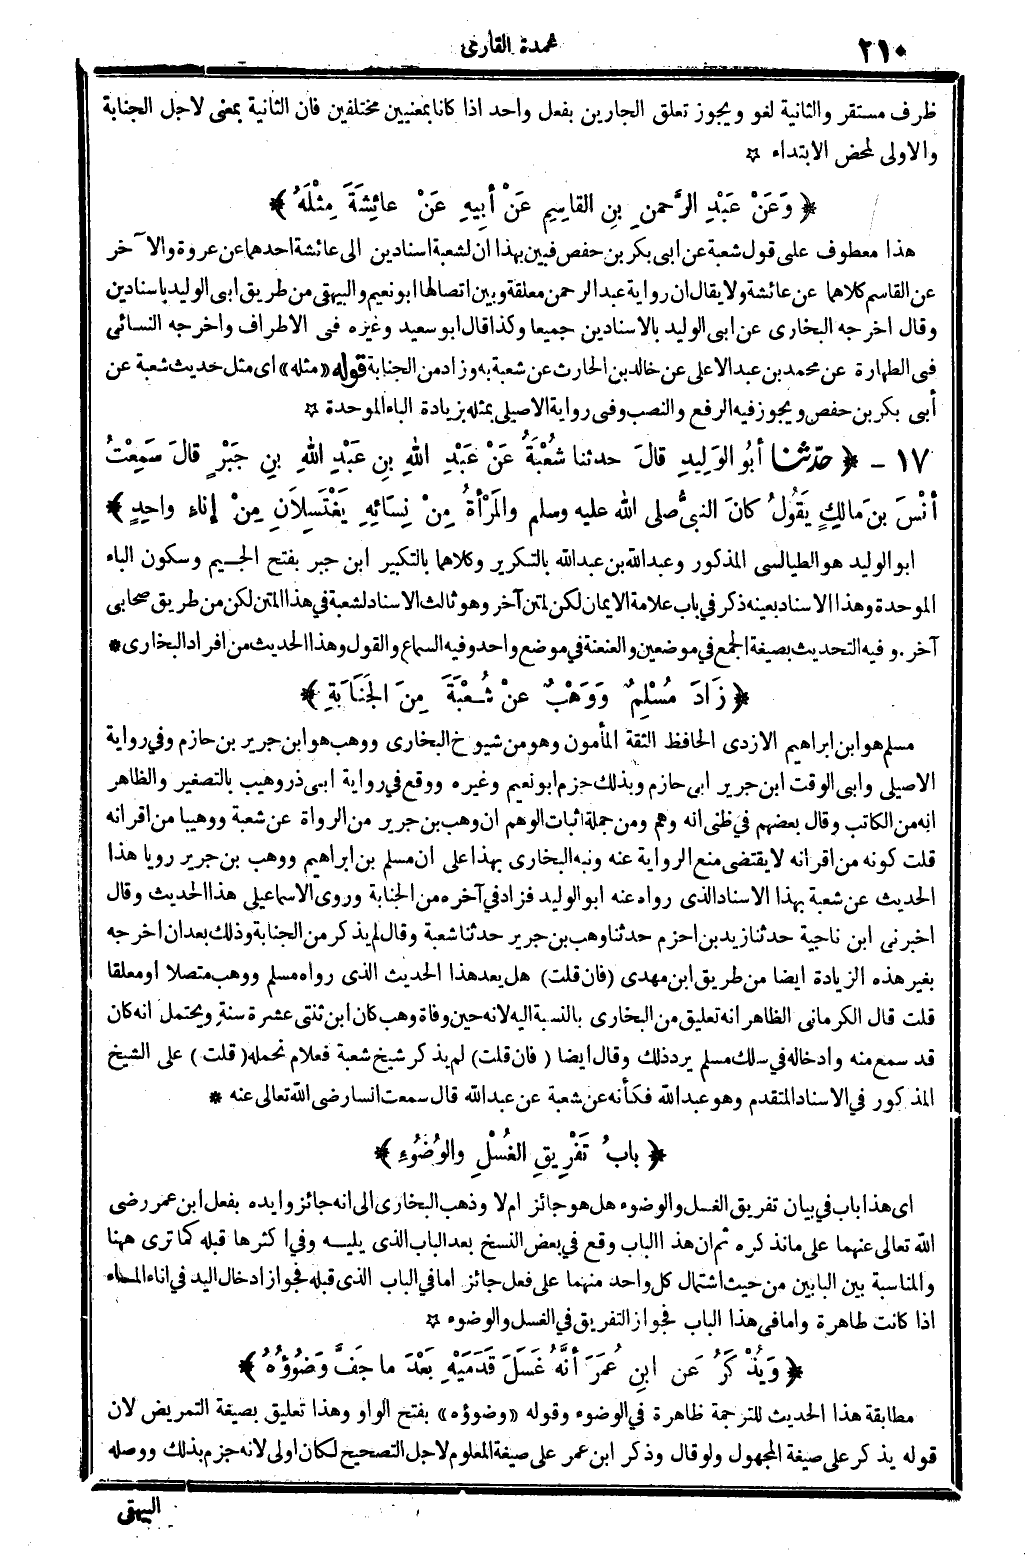 ٢١٠
عمدة القارئ
ظرف مستقر والثانية لغو ويجوز تعلق الجارين بفعل واحد اذا كانا بمعنيين مختلفين فان الثانية بمعنى لاجل الجنابة
والاولى لمحض الابتداء ☆
﴿ وَعَنْ عَبْدِ الرَّحمنِ بنِ القاسِمِ عَنْ أَبِيهِ عَنْ عائِشَةَ مِثْلَهُ ﴾
هذا معطوف على قول شعبة عن ابى بكر بن حفص فبين بهذا ان لشعبة اسنادين الى عائشة احدهما عن عروة والآخر
عن القاسم كلاهما عن عائشة ولا يقال ان رواية عبد الرحمن معلقة وبين اتصالها ابو نعيم والبيهقى من طريق ابى الوليد باسنادين
وقال اخرجه البخارى عن ابى الوليد بالاسنادين جميعا وكذا قال ابو سعيد وغيره فى الاطراف واخرجه النسائى
فى الطهارة عن محمد بن عبد الاعلى عن خالد بن الحارث عن شعبة به وزاد من الجنابة قوله «مثله» اى مثل حديث شعبة عن
أبى بكر بن حفص ويجوز فيه الرفع والنصب وفى رواية الاصيلى بمثله بزيادة الباء الموحدة ☆
١٧ - ﴿ حدّثنا أبُو الوَلِيدِ قالَ حدثنا شُعْبَةُ عَنْ عَبْدِ اللهِ بنِ عَبْدِ اللهِ بنِ جَبْرٍ قالَ سَمِعْتُ
أَنَسَ بنَ مَالِكٍ يَقُولُ كانَ النبيُّ صلى الله عليه وسلم والمَرْأَةُ مِنْ نِسَائِهِ يَغْتَسِلاَنِ مِنْ إناءٍ واحِدٍ ﴾
ابو الوليد هو الطيالسى المذكور وعبدالله بن عبدالله بالتكرير وكلاهما بالتكبير ابن جبر بفتح الجيم وسكون الباء
الموحدة وهذا الاسناد بعينه ذكر في باب علامة الايمان لكن لمتن آخر وهو ثالث الاسناد لشعبة في هذا المتن لكن من طريق صحابى
آخر . وفيه التحديث بصيغة الجمع في موضعين والعنعنة في موضع واحد وفيه السماع والقول وهذا الحديث من افراد البخارى *
﴿ زَادَ مُسْلِمٌ وَوَهْبٌ عنْ شُعْبَةَ مِنَ الجَنَابَةِ ﴾
مسلم هو ابن ابراهيم الازدى الحافظ الثقة المأمون وهو من شيوخ البخارى ووهب هو ابن جرير بن حازم وفي رواية
الاصيلى وابى الوقت ابن جرير ابى حازم وبذلك جزم ابو نعيم وغيره ووقع في رواية ابى ذر وهيب بالتصغير والظاهر
انه من الكاتب وقال بعضهم في ظنى انه وهم ومن جملة اثبات الوهم ان وهب بن جرير من الرواة عن شعبة ووهيبا من اقرانه
قلت كونه من اقرانه لا يقتضى منع الرواية عنه ونبه البخارى بهذا على ان مسلم بن ابراهيم ووهب بن جرير رويا هذا
الحديث عن شعبة بهذا الاسناد الذى رواه عنه ابو الوليد فزاد في آخره من الجنابة وروى الاسماعيلى هذا الحديث وقال
اخبرنى ابن ناجية حدثنا زيد بن احزم حدثنا وهب بن جرير حدثنا شعبة وقال لم يذكر من الجنابة وذلك بعد ان اخرجه
بغير هذه الزيادة ايضا من طريق ابن مهدى (فان قلت) هل يعد هذا الحديث الذى رواه مسلم ووهب متصلا او معلقا
قلت قال الكرمانى الظاهر انه تعليق من البخارى بالنسبة اليه لانه حين وفاة وهب كان ابن ثنتى عشرة سنة ويحتمل انه كان
قد سمع منه وادخاله في سلك مسلم يرد ذلك وقال ايضا ( فان قلت) لم يذكر شيخ شعبة فعلام نحمله (قلت ) على الشيخ
المذكور في الاسناد المتقدم وهو عبد الله فكأنه عن شعبة عن عبد الله قال سمعت انسا رضى الله تعالى عنه *
﴿ بابُ تَفْرِيقِ الغُسْلِ والوُضُوءِ ﴾
اى هذا باب في بيان تفريق الغسل والوضوء هل هو جائز ام لا وذهب البخارى الى انه جائز وايده بفعل ابن عمر رضى
الله تعالى عنهما على ما نذكره ثم ان هذا الباب وقع في بعض النسخ بعد الباب الذى يليه وفي اكثرها قبله كما ترى ههنا
والمناسبة بين البابين من حيث اشتمال كل واحد منهما على فعل جائز اما في الباب الذى قبله فجواز ادخال اليد في اناء الماء
اذا كانت طاهرة واما فى هذا الباب فجواز التفريق في الغسل والوضوء ☆
﴿ وَيُذْكَرُ عَن ابنِ عُمَرَ أنَّهُ غَسَلَ قَدَمَيْهِ بَعْدَ ما جَفَّ وَضُوؤُهُ ﴾
مطابقة هذا الحديث للترجمة ظاهرة في الوضوء وقوله «وضوؤه» بفتح الواو وهذا تعليق بصيغة التمريض لان
قوله يذكر على صيغة المجهول ولو قال وذكر ابن عمر على صيغة المعلوم لاجل التصحيح لكان اولى لانه جزم بذلك ووصله
البيهقى